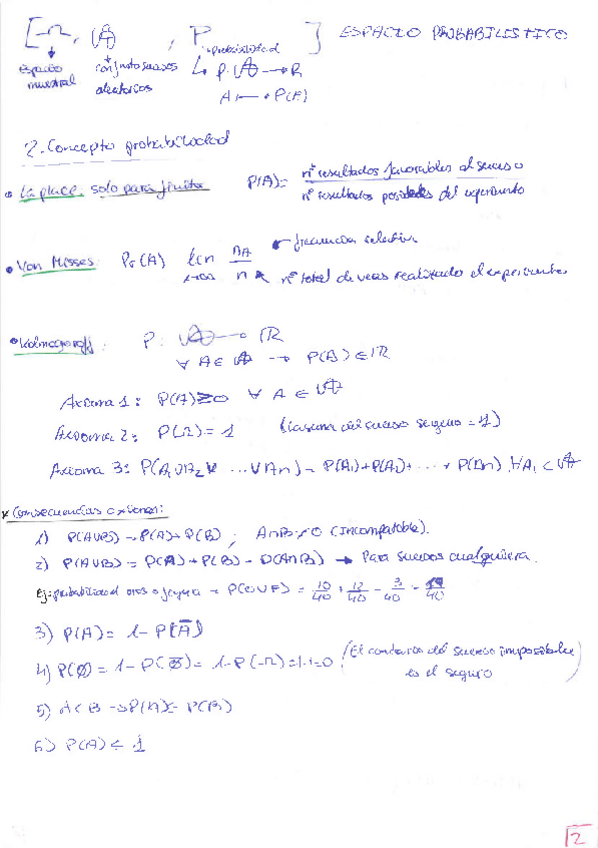 [Ω, 𝒜, P ] ESPACIO PROBABILISTICO
espacio muestral
conjunto sucesos aleatorios
probabilidad
P: 𝒜 → R
A ↦ P(A)
2. Concepto probabilidad
• La place, solo para finita P(A) = nº resultados favorables al suceso / nº resultados posibles del experimento
• Von Misses Pr(A) lim nA / n ← frecuencia
n→∞ nº total de veces realizado el experimento
• Kolmogorov: P: 𝒜 → R
∀ A ∈ 𝒜 → P(A) ∈ R
Axioma 1: P(A) ≥ 0 ∀ A ∈ 𝒜
Axioma 2: P(Ω) = 1 (la suma del suceso seguro = 1)
Axioma 3: P(A₁ ∪ A₂ ∪ ... ∪ An) = P(A₁) + P(A₂) + ... + P(An), ∀Ai ⊂ 𝒜
* Consecuencias axiomas:
1) P(A∪B) = P(A) + P(B) ; A∩B = ∅ (Incompatible).
2) P(A∪B) = P(A) + P(B) - P(A∩B) → Para sucesos cualquiera.
Ej: probabilidad oros o figura → P(O∪F) = 10/40 + 12/40 - 3/40 = 19/40
3) P(A) = 1 - P(Ā)
4) P(∅) = 1 - P(∅̄) = 1 - P(Ω) = 1-1 = 0 (El contrario del suceso imposible es el seguro)
5) A ⊂ B → P(A) ≤ P(B)
6) P(A) ≤ 1
2